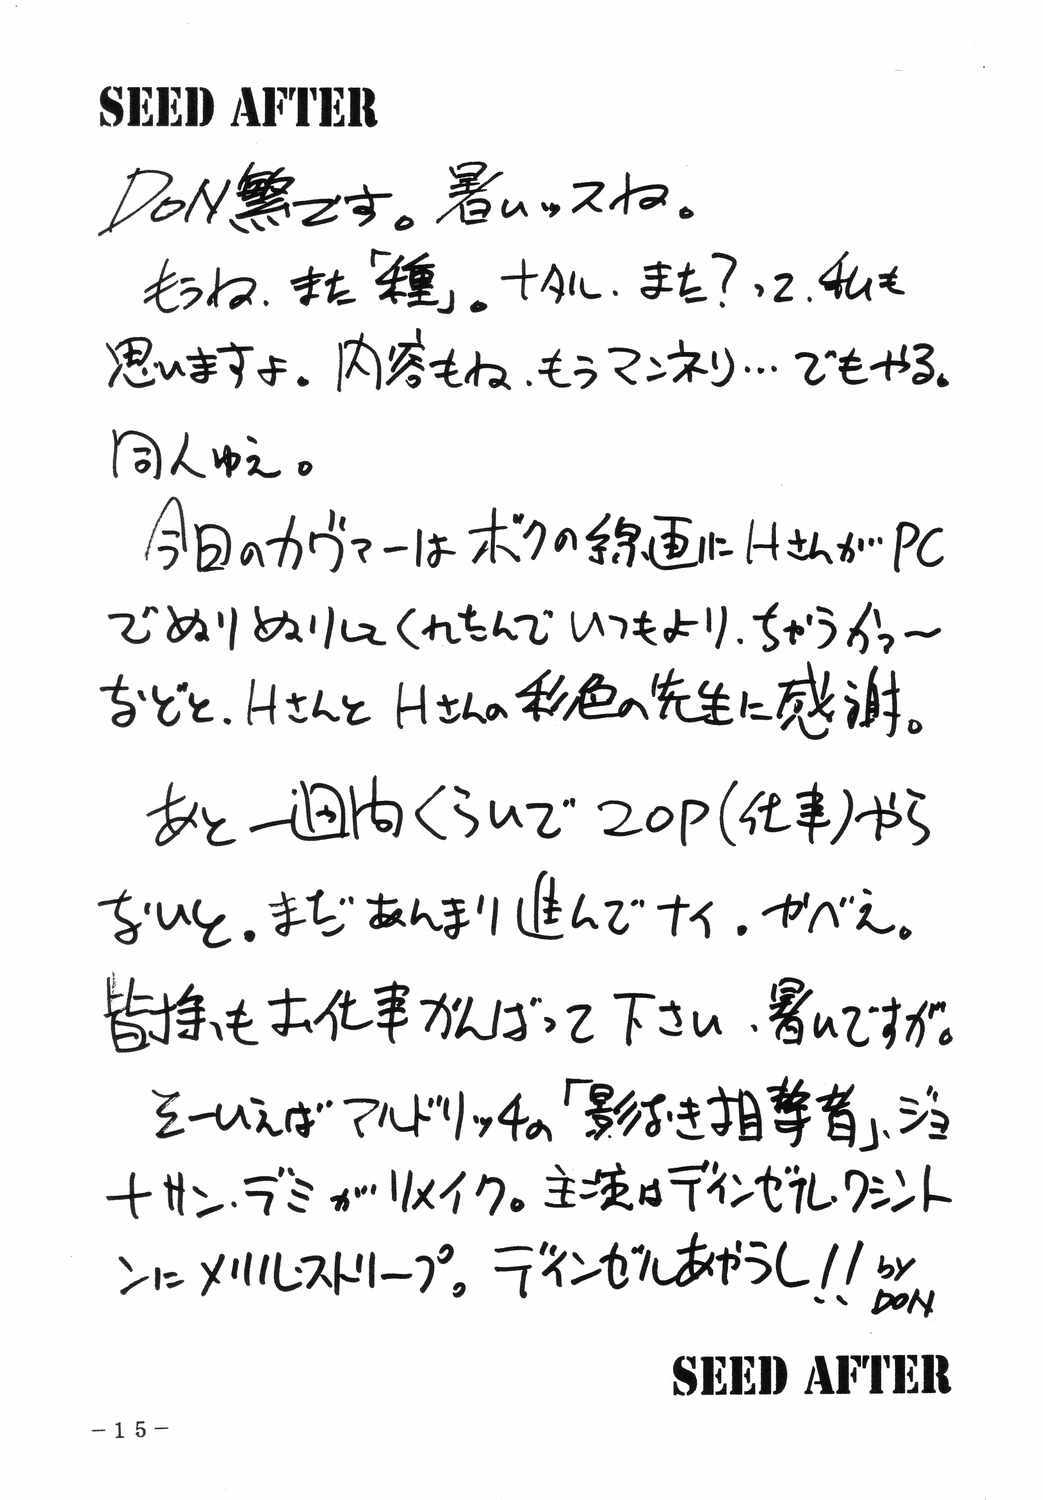 SEED AFTER
DON繁です。暑いッスね。
もうね、また「種」。ナタル、また?って、私も
思いますよ。内容もね、もうマンネリ…でもやる。
同人ゆえ。
今回のカヴァーはボクの線画にHさんが…PC
でぬりぬりしてくれたんでいつもより、ちゃうかっ〜
などと、HさんとHさんの彩色の先生に感謝。
あと一週間くらいで20P(仕事)やら
ないと。まだあんまり進んでナイ。がべえ。
皆様もお仕事がんばって下さい、暑いですが。
そーいえばアルドリッチの「影なき狙撃者」、ジョ
ナサン・デミがリメイク。主演はディンゼル・ワシント
ンにメリル・ストリープ。ディンゼルあやうし!!by
DON
SEED AFTER
-15-